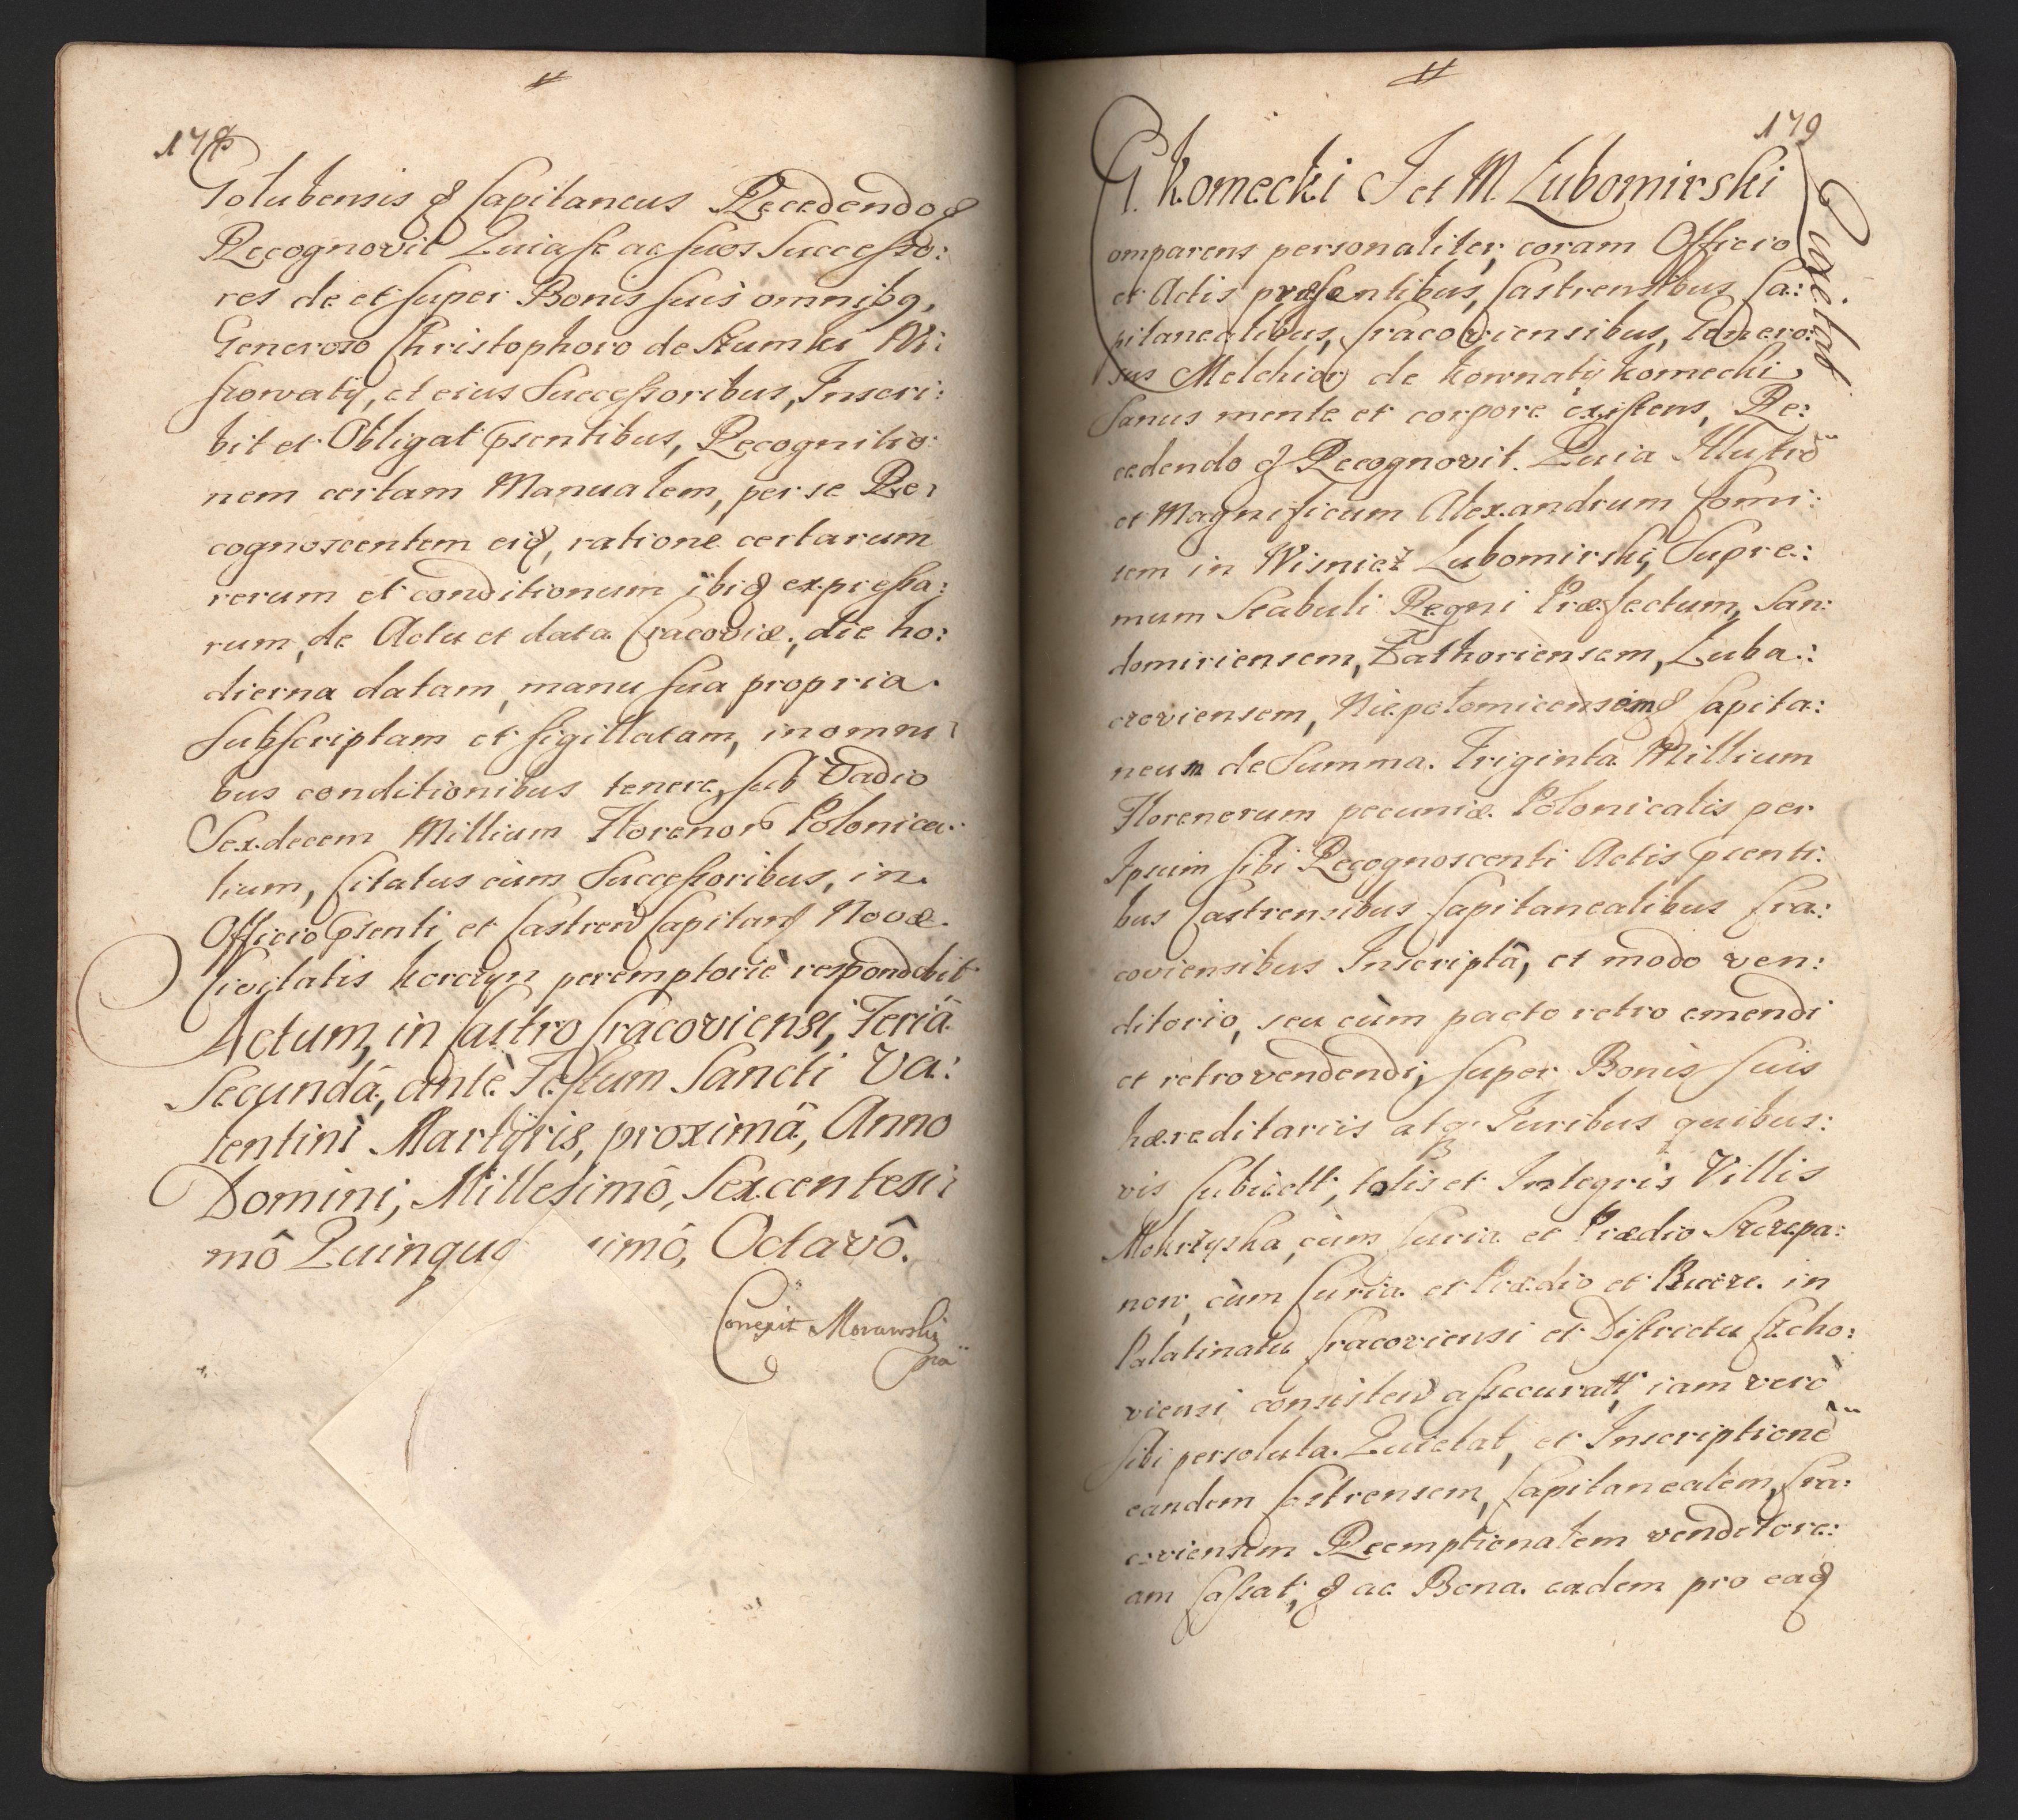 178
Golubensis & Capitaneus Recedendo &
Recognovit Quia se ac suos Successo:
res de et super Bonis suis omnibq,
Generoso Christophoro de Stumki Wi:
szowaty, et eius Successoribus, Inscri:
bit et Obligat pñentibus, Recognitio
nem certam Manualem, per se Re:
cognoscentem eiq, ratione certarum
rerum et conditionum ibiq expressa:
rum, de Actu et data Cracoviæ, die ho:
dierna datam, manu sua propria
Subscriptam et sigillatam, in omni:
bus conditionibus tenere, sub Vadio
Sexdecem Millium Florenor Polonica
lium, Citatus cùm Successoribus, in
Officio pñenti et Castren Capitan Novæ
Civitatis Korczyn peremptoriè respondebit
Actum, in Castro Cracoviensi, Feriâ
Secundâ, antè Festum Sancti Va:
lentini Martÿris, proximâ, Anno
Domini, Millesimô, Sexcentesi:
mô Quinqua imô, Octavô.
Correxit Morawski
mã
179
G. Komecki I et M. Lubomirski
Quietat
omparens personaliter, coram Officio
et Actis præsentibus, Castrensibus Ca:
pitanealibus, Cracoviensibus, Genero:
sus Melchior de Kownaty Komecki
Sanus mente et corpore existens, Re:
cedendo & Recognovit. Quia Illustrẽ
et Magnificum Alexandrum Comi:
tem in Wisnicz Lubomirski, Supre:
mum Stabuli Regni Præfectum, San:
domiriensem, Zathoriensem, Luba:
czoviensem, Niepolomicensemq Capita:
neum de Summa Triginta Millium
Florenorum pecuniæ Polonicalis per
Ipsum sibi Recognoscenti Actis pñenti:
bus Castrensibus Capitanealibus Cra:
coviensibus Inscriptâ, et modo ven:
ditorio, seu cùm pacto retro emendi
et retrovendendi, super Bonis suis
hæreditariis atq Iuribus quibus:
vis subiectt, totis et Integris Villis
Mokrzyska, cùm Curia et Prædio Szczepa:
now, cùm Curia et Prædio et Bucze in
Palatinatu Cracoviensi et Districtu Czcho:
viensi consisten assecuratt, iam verò
sibi persoluta Quietat, et Inscriptionẽ
eandem Castrensem, Capitanealem, Cra:
coviensem Reemptionalem venditore:
am Cassat, & ac Bona eadem pro eaq